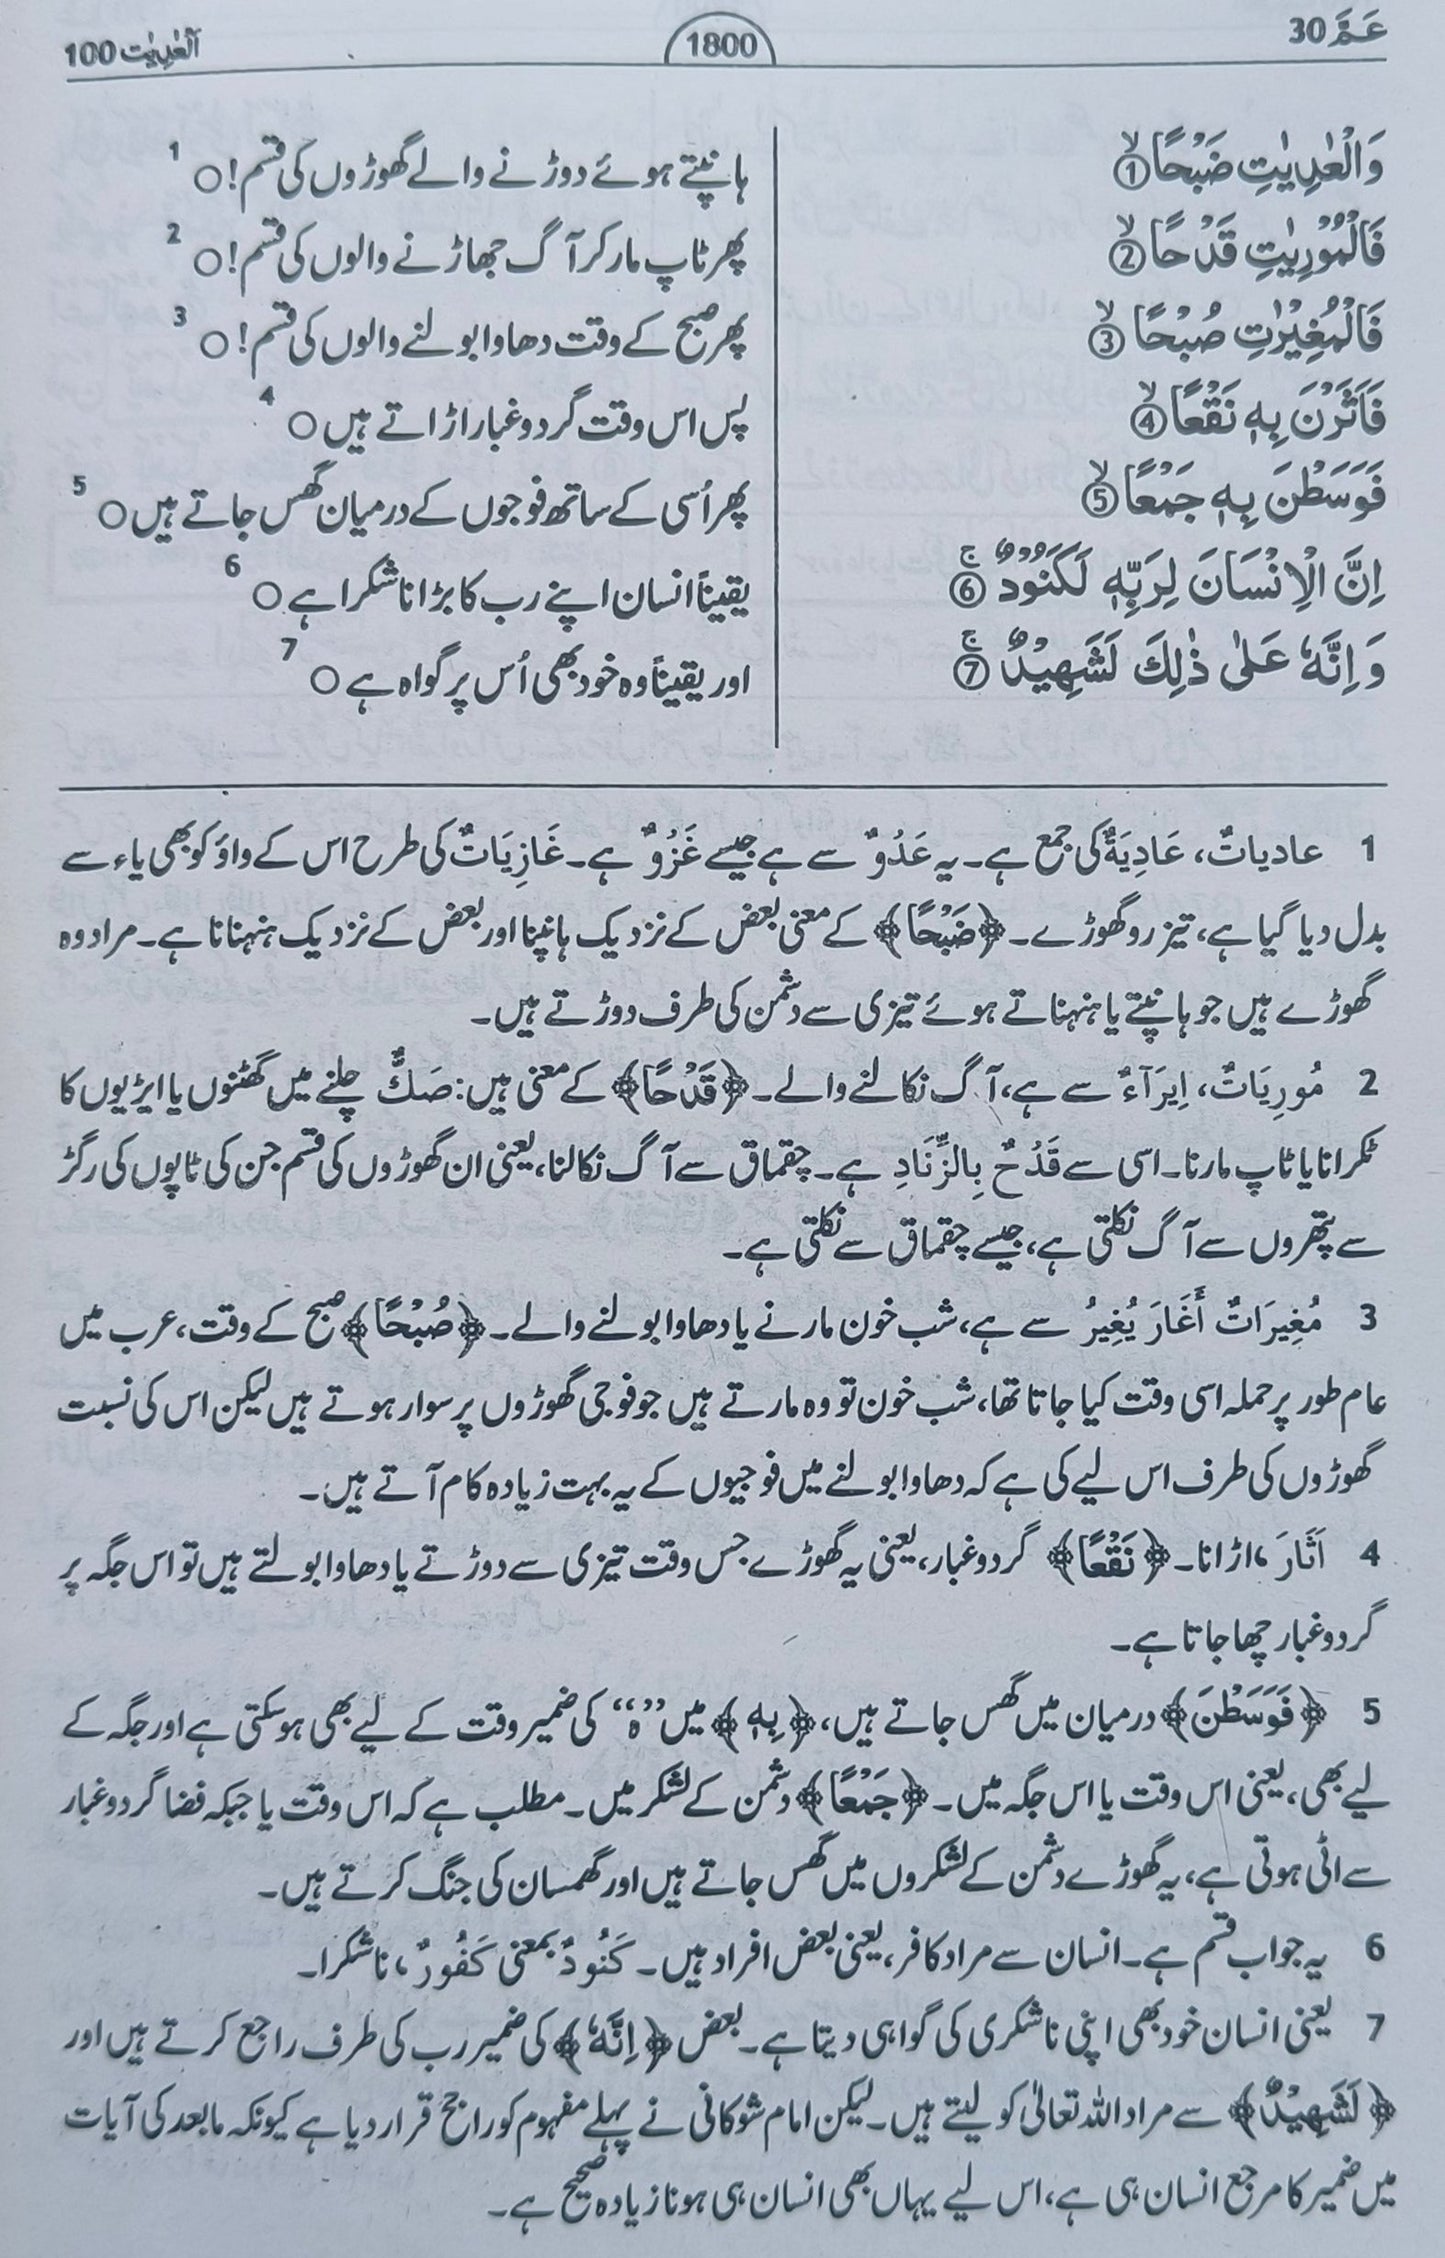 عَمَّ 30
1800
اَلْعٰدِیٰت 100
وَالْعٰدِيٰتِ ضَبْحًا ①ۙ
فَالْمُوْرِيٰتِ قَدْحًا ②ۙ
فَالْمُغِيْرٰتِ صُبْحًا ③ۙ
فَاَثَرْنَ بِهٖ نَقْعًا ④ۙ
فَوَسَطْنَ بِهٖ جَمْعًا ⑤ۙ
اِنَّ الْاِنْسَانَ لِرَبِّهٖ لَكَنُوْدٌ ⑥ۚ
وَاِنَّهٗ عَلٰى ذٰلِكَ لَشَهِيْدٌ ⑦ۚ
ہانپتے ہوئے دوڑنے والے گھوڑوں کی قسم! ○ 1
پھر ٹاپ مار کر آگ جھاڑنے والوں کی قسم! ○ 2
پھر صبح کے وقت دھاوا بولنے والوں کی قسم! ○ 3
پس اس وقت گرد و غبار اڑاتے ہیں ○ 4
پھر اُسی کے ساتھ فوجوں کے درمیان گھس جاتے ہیں ○ 5
یقیناً انسان اپنے رب کا بڑا ناشکرا ہے ○ 6
اور یقیناً وہ خود بھی اُس پر گواہ ہے ○ 7
1 عادیاتٌ، عَادِیَةٌ کی جمع ہے۔ یہ عَدْوٌ سے ہے جیسے غَزْوٌ ہے۔ غَازِیَاتٌ کی طرح اس کے واؤ کو بھی یاء سے
بدل دیا گیا ہے، تیز رو گھوڑے۔ ﴿ضَبْحًا﴾ کے معنی بعض کے نزدیک ہانپنا اور بعض کے نزدیک ہنہنانا ہے۔ مراد وہ
گھوڑے ہیں جو ہانپتے یا ہنہناتے ہوئے تیزی سے دشمن کی طرف دوڑتے ہیں۔
2 مُورِیَاتٌ، اِیرَآءٌ سے ہے، آگ نکالنے والے۔ ﴿قَدْحًا﴾ کے معنی ہیں: صَكٌّ چلنے میں گھٹنوں یا ایڑیوں کا
ٹکرانا یا ٹاپ مارنا۔ اسی سے قَدْحٌ بِالزِّنَادِ ہے۔ چقماق سے آگ نکالنا، یعنی ان گھوڑوں کی قسم جن کی ٹاپوں کی رگڑ
سے پتھروں سے آگ نکلتی ہے، جیسے چقماق سے نکلتی ہے۔
3 مُغِیرَاتٌ أَغَارَ یُغِیرُ سے ہے، شب خون مارنے یا دھاوا بولنے والے۔ ﴿صُبْحًا﴾ صبح کے وقت، عرب میں
عام طور پر حملہ اسی وقت کیا جاتا تھا، شب خون تو وہ مارتے ہیں جو فوجی گھوڑوں پر سوار ہوتے ہیں لیکن اس کی نسبت
گھوڑوں کی طرف اس لیے کی ہے کہ دھاوا بولنے میں فوجیوں کے یہ بہت زیادہ کام آتے ہیں۔
4 اَثَارَ، اڑانا۔ ﴿نَقْعًا﴾ گرد و غبار، یعنی یہ گھوڑے جس وقت تیزی سے دوڑتے یا دھاوا بولتے ہیں تو اس جگہ پر
گرد و غبار چھا جاتا ہے۔
5 ﴿فَوَسَطْنَ﴾ درمیان میں گھس جاتے ہیں، ﴿بِهٖ﴾ میں ”ہٖ“ کی ضمیر وقت کے لیے بھی ہو سکتی ہے اور جگہ کے
لیے بھی، یعنی اس وقت یا اس جگہ میں۔ ﴿جَمْعًا﴾ دشمن کے لشکر میں۔ مطلب ہے کہ اس وقت یا جبکہ فضا گرد و غبار
سے اٹی ہوتی ہے، یہ گھوڑے دشمن کے لشکروں میں گھس جاتے ہیں اور گھمسان کی جنگ کرتے ہیں۔
6 یہ جواب قسم ہے۔ انسان سے مراد کافر، یعنی بعض افراد ہیں۔ كَنُودٌ بمعنی كَفُورٌ، ناشکرا۔
7 یعنی انسان خود بھی اپنی ناشکری کی گواہی دیتا ہے۔ بعض ﴿اِنَّهٗ﴾ کی ضمیر رب کی طرف راجع کرتے ہیں اور
﴿لَشَهِيْدٌ﴾ سے مراد اللہ تعالیٰ کو لیتے ہیں۔ لیکن امام شوکانی نے پہلے مفہوم کو راجح قرار دیا ہے کیونکہ مابعد کی آیات
میں ضمیر کا مرجع انسان ہی ہے، اس لیے یہاں بھی انسان ہی ہونا زیادہ صحیح ہے۔